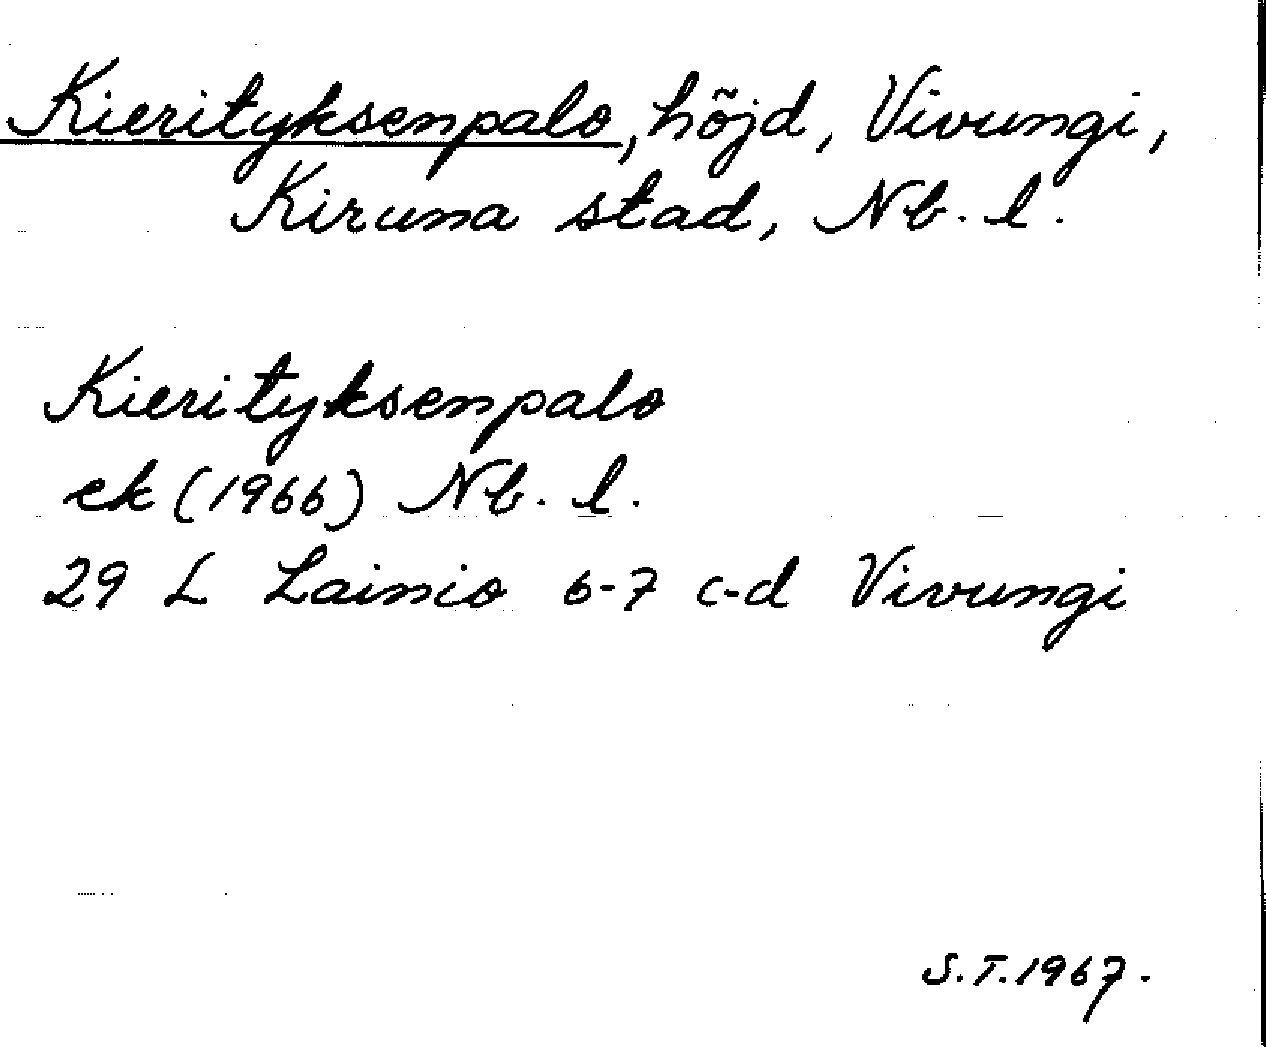 Kierityksenpalo, höjd, Vivungi,
Kiruna stad, Nb. l.
Kierityksenpalo
ek (1966) Nb. l.
29 L Lainio 6-7 c-d Vivungi
S.T. 1967.